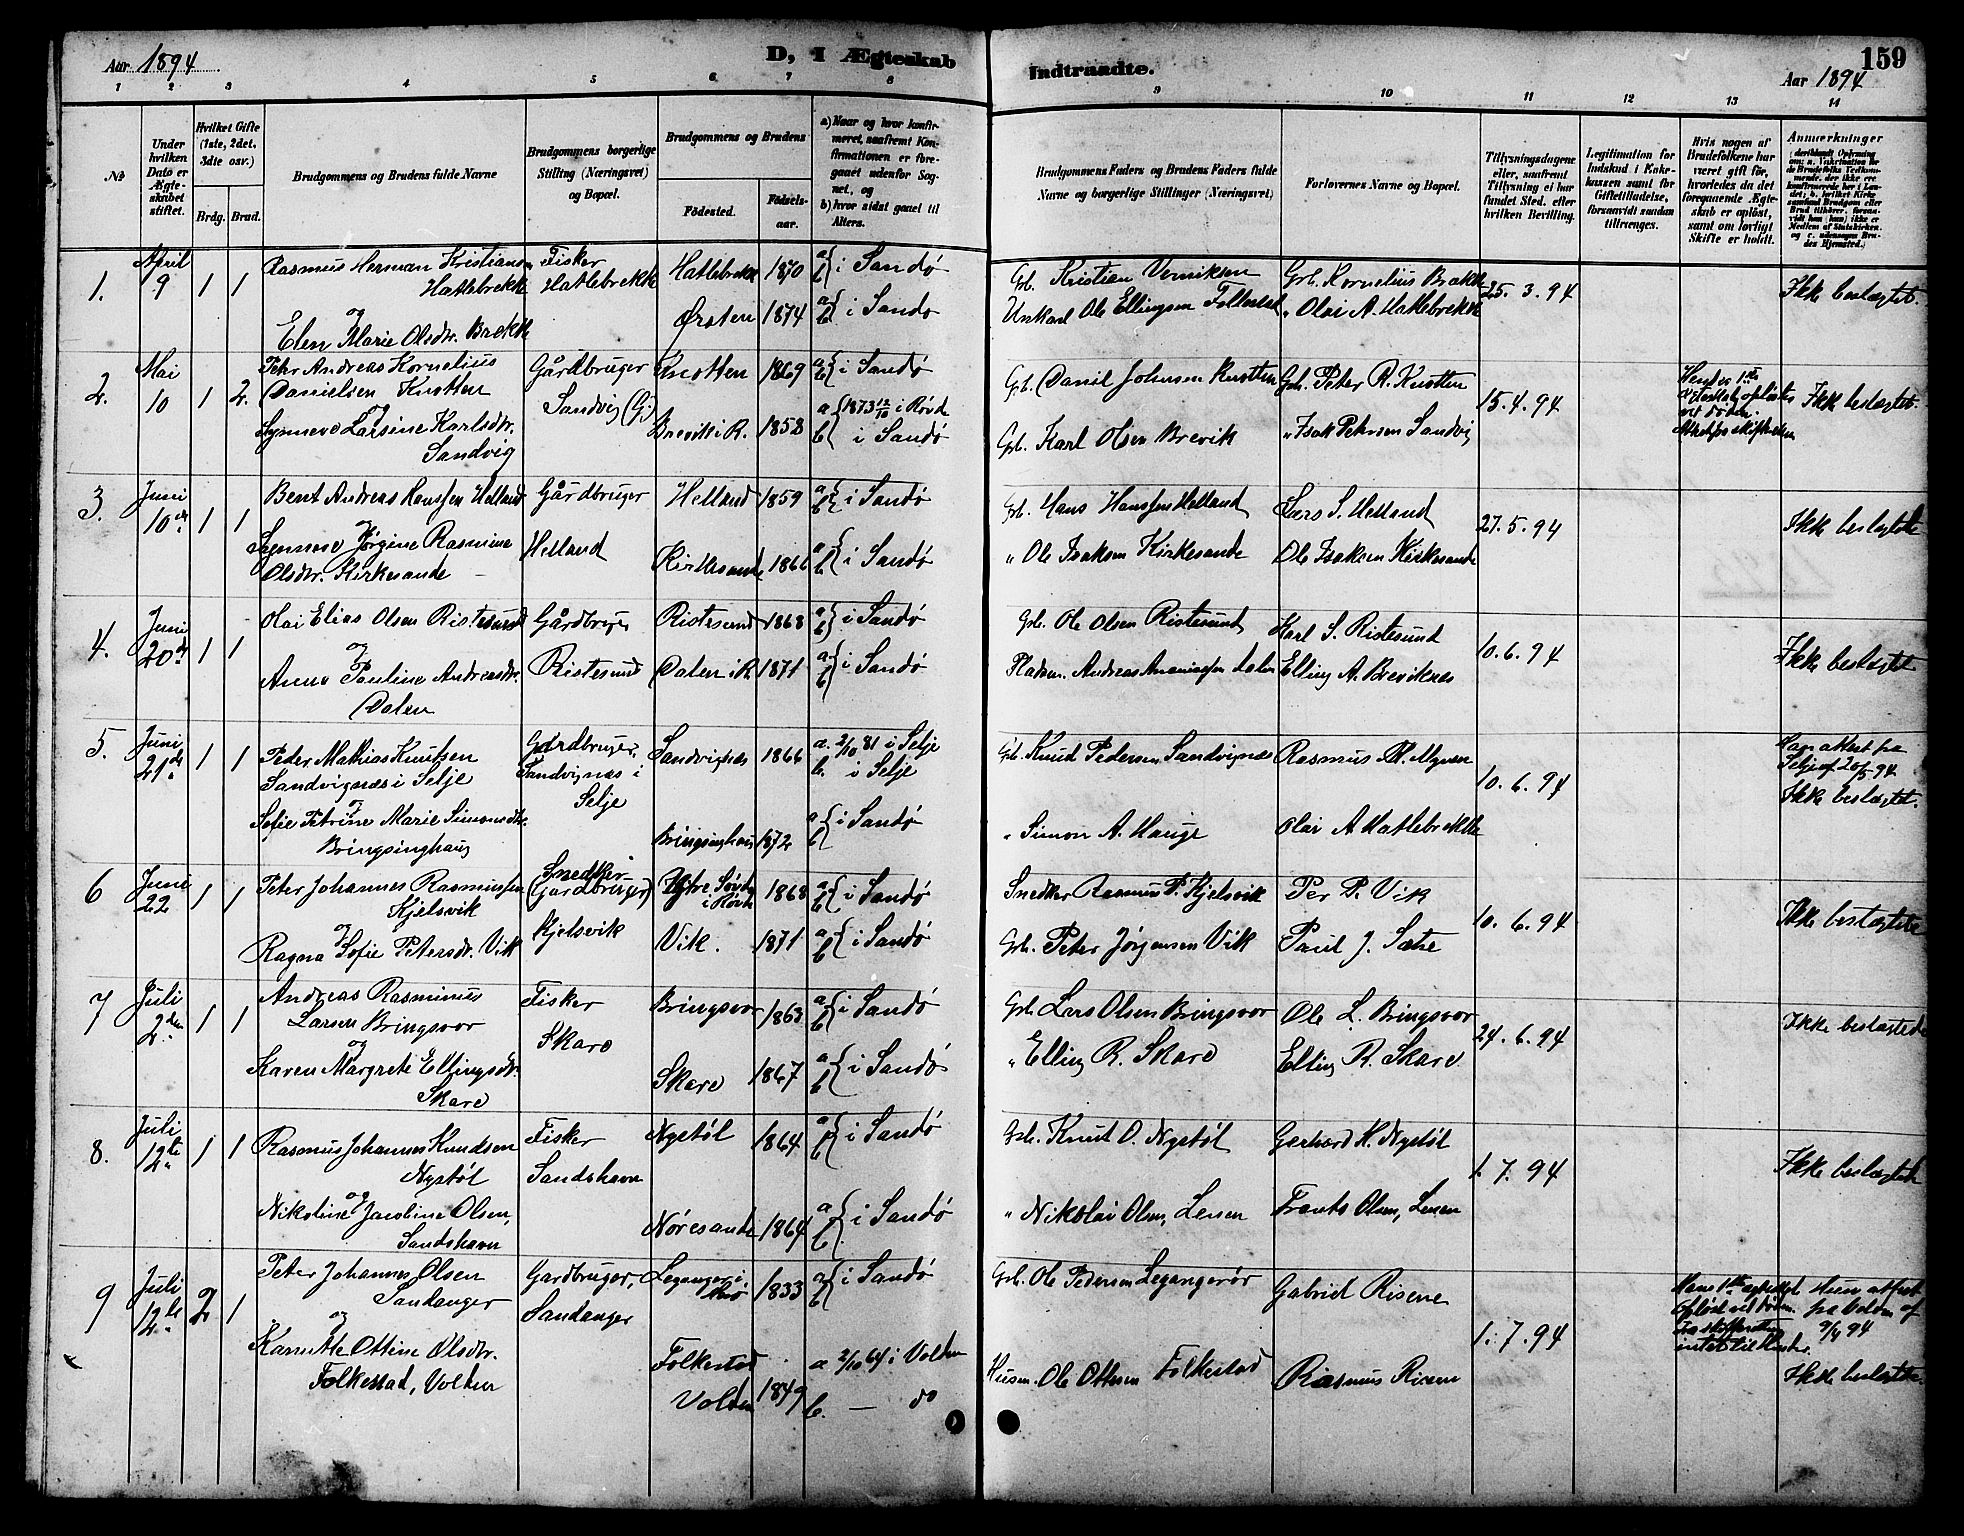 Aar 1894
D, I Ægteskab
Indtraadte.
159
Aar 1894
1 2 3 4 5 6 7 8 9 10 11 12 13 14
№
Under hvilken Dato er Ægteskabet stiftet.
Hvilket Gifte (1ste, 2det, 3die osv.)
Brdg. Brud.
Brudgommens og Brudens fulde Navne
Brudgommens borgerlige Stilling (Næringsvei) og Bopæl.
Brudgommens og Brudens
Födested.
Födselsaar.
a) Naar og hvor konfirmeret, saafremt Konfirmationen er foregaaet udenfor Sognet, og
b) hvor sidst gaaet til Alters.
Brudgommens Faders og Brudens Faders fulde Navne og borgerlige Stillinger (Næringsvei)
Forlovernes Navne og Bopæl.
Tillysningsdagene eller, saafremt Tillysning ei har fundet Sted, efter hvilken Bevilling.
Legitimation for Indskud i Enkekassen samt for Giftetilladelse, forsaavidt saadan tiltrænges.
Hvis nogen af Brudefolkene har været gift för, hvorledes da det foregaaende Ægteskab er oplöst, samt om lovligt Skifte er holdt.
Anmerkninger
1. April 9 1 1
Rasmus Herman Kristiansen Hatlebrekk
og
Elen Marie Olsdtr. Brekk
Fisker Hatlebrekk
Hatlebrekk 1870 a b i Sandö
Ørsten 1874 a b i Sandö
Gb. Kristian
Olsen Ole Ellingsen Folkestad
Gb. Kornelius Brekk
" Olai A. Hatlebrekk
25. 3. 94
Ikke beslægtet.
2. Mai 10 1 2.
Petr Andreas Kornelius Danielsen Knotten
og
Synneve Larsine Karlsdtr. Sandvig
Gårdbruger Sandvig (G)
Knotten 1869 a b i Sandö
Brevik i R. 1858 a 1873 12/10 i Røvde b i Sandö
Gb. Danil Johnsen Knotten
Gb. Karl Olsen Brevik
Gb. Peter R. Knotten
" Isak Petersen Sandvig
15. 4. 94
Hendes 1ste Ægteskab opløstes ved döden.
Ikke beslægtet.
3. Juni 10de 1 1
Bent Andreas Hanssen Helland
Synneve Jörgine Rasmine Olsdtr. Kirkesande
Gårdbruger Helland
Helland 1859 a b i Sandö
Kirkesande 1866 a b i Sandö
Gb. Hans Hanssen Helland
" Ole Isaksen Kirkesande
Lars S. Helland
Ole Isaksen Kirkesande
27. 5. 94
Ikke beslægtede
4. Juni 20de 1 1
Olai Elias Olsen Ristesund
og
Anne Pauline Andreasdtr. Dalen
Gårdbruger Ristesund
Ristesund 1868 a b i Sandö
Dalen i R. 1871 a b i Sandö
Gb. Ole Olsen Ristesund
Pladsm. Andreas Ananiassen Dalen
Karl S. Ristesund
Elling A. Breviknes
10. 6. 94
Ikke beslægtet
5. Juni 21de 1 1
Peder Mathias Knutsen Sandvignæs i Selje
og
Sofie Petrine Marie Simonsdtr. Bringsinghaug
Gardbruger, Sandvignæs i Selje
Sandvignæs 1866 a. 2/10 81 i Selje b. i Selje
Bringsinghaug 1872 a b i Sandö
Gb. Knud Pedersen Sandvignæs
" Simon A. Hauge
Rasmus M. Myren
Olai A Hatlebrekk
10. 6. 94
Han attest fra Selje af 20/5 94
Ikke beslægtet.
6 Juni 22 1 1
Peter Johannes Rasmussen Kjelsvik
og
Ragna Sofie Petersdr. Vik
Snedker (Gardbruger) Kjelsvik
Ytre Søvde i Røvde 1868 a b i Sandö
Vik. 1871 a b i Sandö
Snedker Rasmus P. Kjelsvik
Gb. Peter Jørgensen Vik
Per P. Vik
Paul J. Sætre
10. 6. 94
Ikke beslægtede
7 Juli 2den 1 1
Andreas Rasmus Larsen Bringsvor
og
Karen Margrete Ellingsdtr. Skare
Fisker Skare
Bringsvor 1863 a b i Sandö
Skare 1867 a b i Sandö
Gb. Lars Olsen Bringsvor
" Elling R. Skare
Ole L. Bringsvor
Elling R. Skare
24. 6. 94
Ikke beslægtede
8. Juli 12te 1 1
Rasmus Johannes Knudsen Nystøl
og
Nikoline Jacobine Olsen, Sandshavn
Fisker Sandshavn
Nystøl 1864 a b i Sandö
Nøresande 1864 a b i Sandö
Gb. Knut O. Nystøl
" Nikolai Olsen, Lensen
Gerhard K. Nystøl
Frants Olsen, Lensen
1. 7. 94
Ikke beslægtede
9 Juli 12te 2 1
Peter Johannes Olsen Sandanger
og
Kanutte Ottine Olsdtr. Folkestad, Volden
Gardbruger, Sandanger
Leganger i Røvde 1833 a b i Sandö
Folkestad Volden 1849 a 2/10 64 i Volden b. — do
Gb. Ole Pedersen Legangerør
Husm. Ole Ottesen Folkestad
Gabriel Risene
Rasmus Risene
1. 7. 94
Hans 1ste ægteskab opløst ved døden.
Hun attest fra Volden af 9/4 94
Ikke beslægtede.